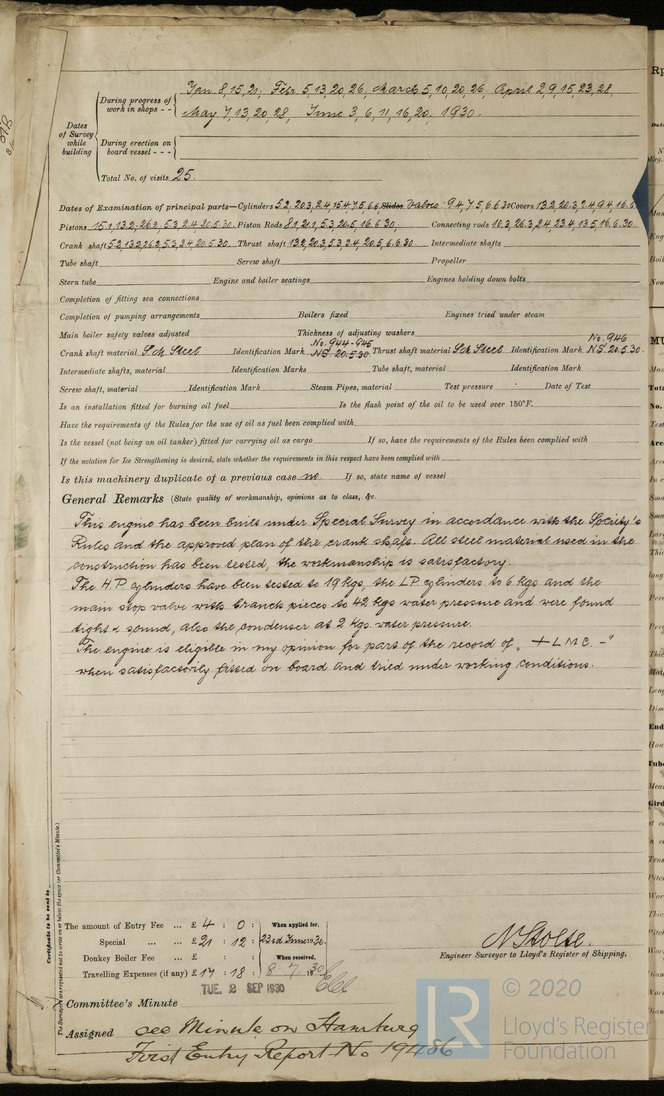 Dates of Survey while building
During progress of work in shops - - Jan. 8, 15, 21, Febr. 5, 13, 20, 26, March 5, 10, 20, 26, April 2, 9, 15, 23, 28,
May 7, 13, 20, 28, June 3, 6, 11, 16, 20, 1930.
During erection on board vessel - - -
Total No. of visits 25.
Dates of Examination of principal parts—Cylinders Slides Valves Covers
Pistons Piston Rods Connecting rods
Crank shaft Thrust shaft Intermediate shafts
Tube shaft Screw shaft Propeller
Stern tube Engine and boiler seatings Engines holding down bolts
Completion of fitting sea connections
Completion of pumping arrangements Boilers fixed Engines tried under steam
Main boiler safety valves adjusted Thickness of adjusting washers
Crank shaft material S.M. Steel Identification Mark No. 944-945 NS 20.5.30 Thrust shaft material S.M. Steel Identification Mark No. 946 NS 20.5.30.
Intermediate shafts, material Identification Marks Tube shaft, material Identification Mark
Screw shaft, material Identification Mark Steam Pipes, material Test pressure Date of Test
Is an installation fitted for burning oil fuel Is the flash point of the oil to be used over 150°F.
Have the requirements of the Rules for the use of oil as fuel been complied with
Is the vessel (not being an oil tanker) fitted for carrying oil as cargo If so, have the requirements of the Rules been complied with
If the notation for Ice Strengthening is desired, state whether the requirements in this respect have been complied with
Is this machinery duplicate of a previous case no If so, state name of vessel
General Remarks (State quality of workmanship, opinions as to class, &c.
This engine has been built under Special Survey in accordance with the Society's
Rules and the approved plan of the crank shaft. All steel material used in the
construction has been tested, the workmanship is satisfactory.
The H.P cylinders have been tested to 19 kgs, the L.P. cylinders to 6 kgs and the
main stop valve with branch pieces to 42 kgs water pressure and were found
tight & sound, also the condenser at 2 kgs. water pressure.
The engine is eligible in my opinion for part of the record of „ + L M C. -"
when satisfactorily fitted on board and tried under working conditions.
Certificate to be sent to
The Surveyors are requested not to write on or below the space for Committee's Minute.
The amount of Entry Fee ... £ 4 : 0 : When applied for,
Special ... ... £ 21 : 12 : 23rd June 1930.
Donkey Boiler Fee ... £ : : When received,
Travelling Expenses (if any) £ 17 : 18 : 8 7 30
N Stolte.
Engineer Surveyor to Lloyd's Register of Shipping.
TUE. 2 SEP 1930
Committee's Minute
Assigned see Minute on Hamburg
First Entry Report No 19486
LR © 2020
Lloyd's Register
Foundation